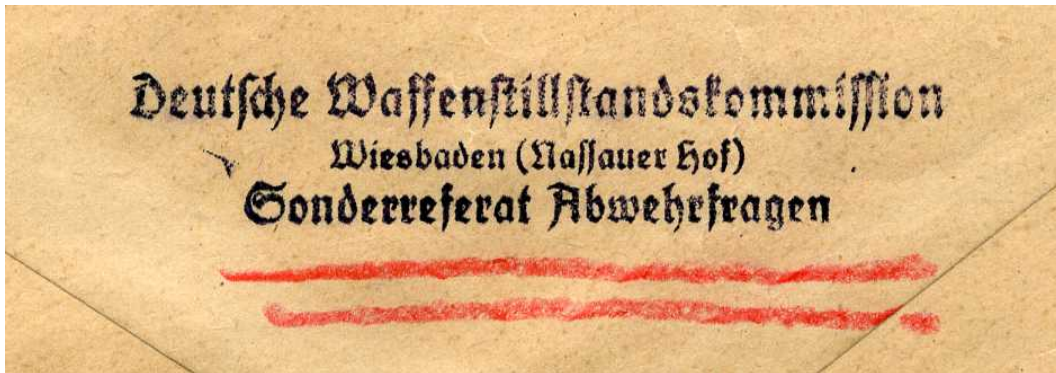 Deutsche Waffenstillstandskommission
Wiesbaden (Nassauer Hof)
Sonderreferat Abwehrfragen